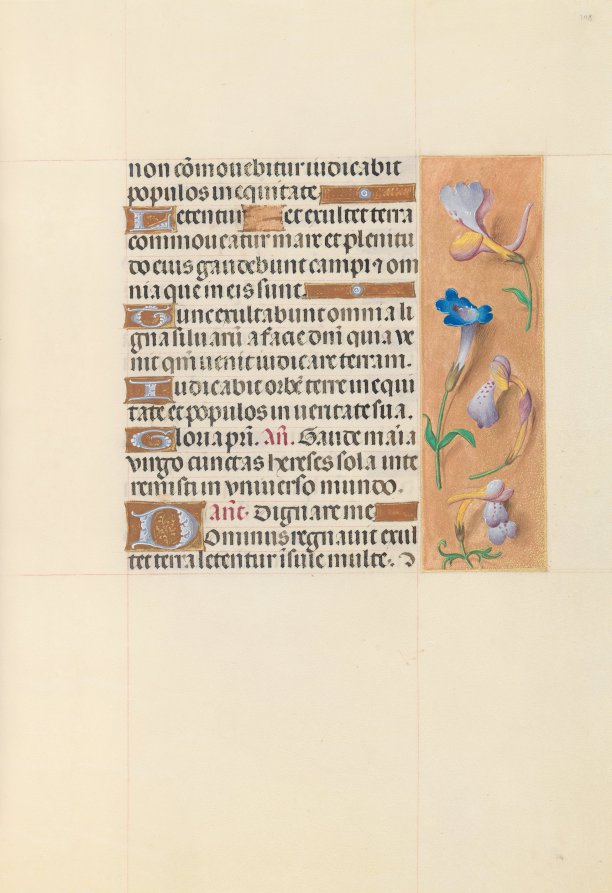 108
non cōmouebitur iudicabit
populos in equitate
Letentur et exultet terra
commoueatur mare et plenitu
do eius gaudebunt campi ⁊ om
nia que in eis sunt.
Tunc exultabunt omnia li
gna siluarū a facie dnī quia ve
nit qm̄ uenit iudicare terram.
Iudicabit orbē terre in equi
tate et populos in ueritate sua.
Gloria pri. An̄. Gaude maīa
virgo cunctas hereses sola inte
remisti in vniuerso mundo.
Anē. Dignare me
Dominus regnauit exul
tet terra letentur īsule multe.